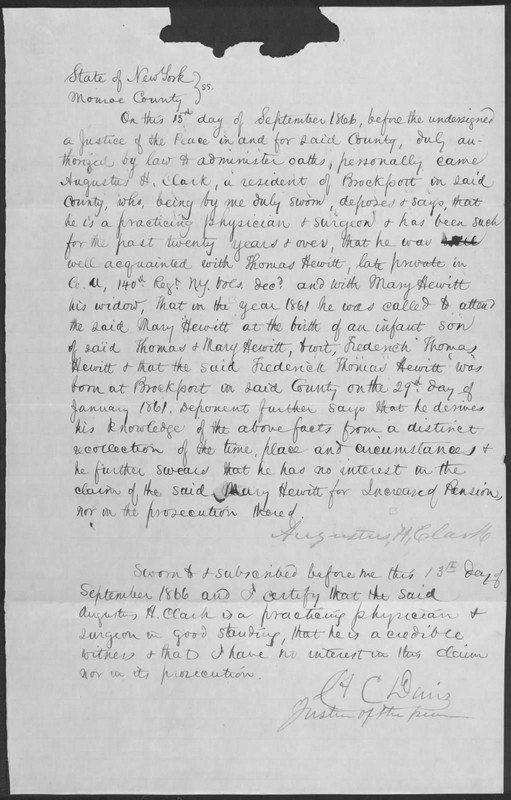 State of New York
Monroe County } ss.
On this 13th day of September 1866, before the undersigned
a Justice of the Peace in and for said County, duly au-
thorized by law to administer oaths, personally came
Augustus H. Clark, a resident of Brockport in said
County, who, being by me duly sworn, deposes & says, that
he is a practicing physician & surgeon & has been such
for the past twenty years & over, that he was
well acquainted with Thomas Hewitt, late private in
Co. A, 140th Regt. N.Y. Vols. Decd. and with Mary Hewitt
his widow, That in the year 1861 he was called to attend
the said Mary Hewitt at the birth of an infant son
of said Thomas & Mary Hewitt, towit, Frederick Thomas
Hewitt & that the said Frederick Thomas Hewitt was
born at Brockport in said County on the 29th day of
January 1861. Deponent further says that he derives
his knowledge of the above facts from a distinct
recollection of the time, place and circumstances &
he further swears that he has no interest in the
claim of the said Mary Hewitt for Increased Pension,
nor in the prosecution thereof.
Augustus, H, Clark
Sworn to & subscribed before me this 13th day of
September 1866 and I certify that the said
Augustus H. Clark is a practicing physician &
surgeon in good standing, that he is a credible
witness & that I have no interest in this claim
nor in its prosecution.
C Davis
Justice of the peace